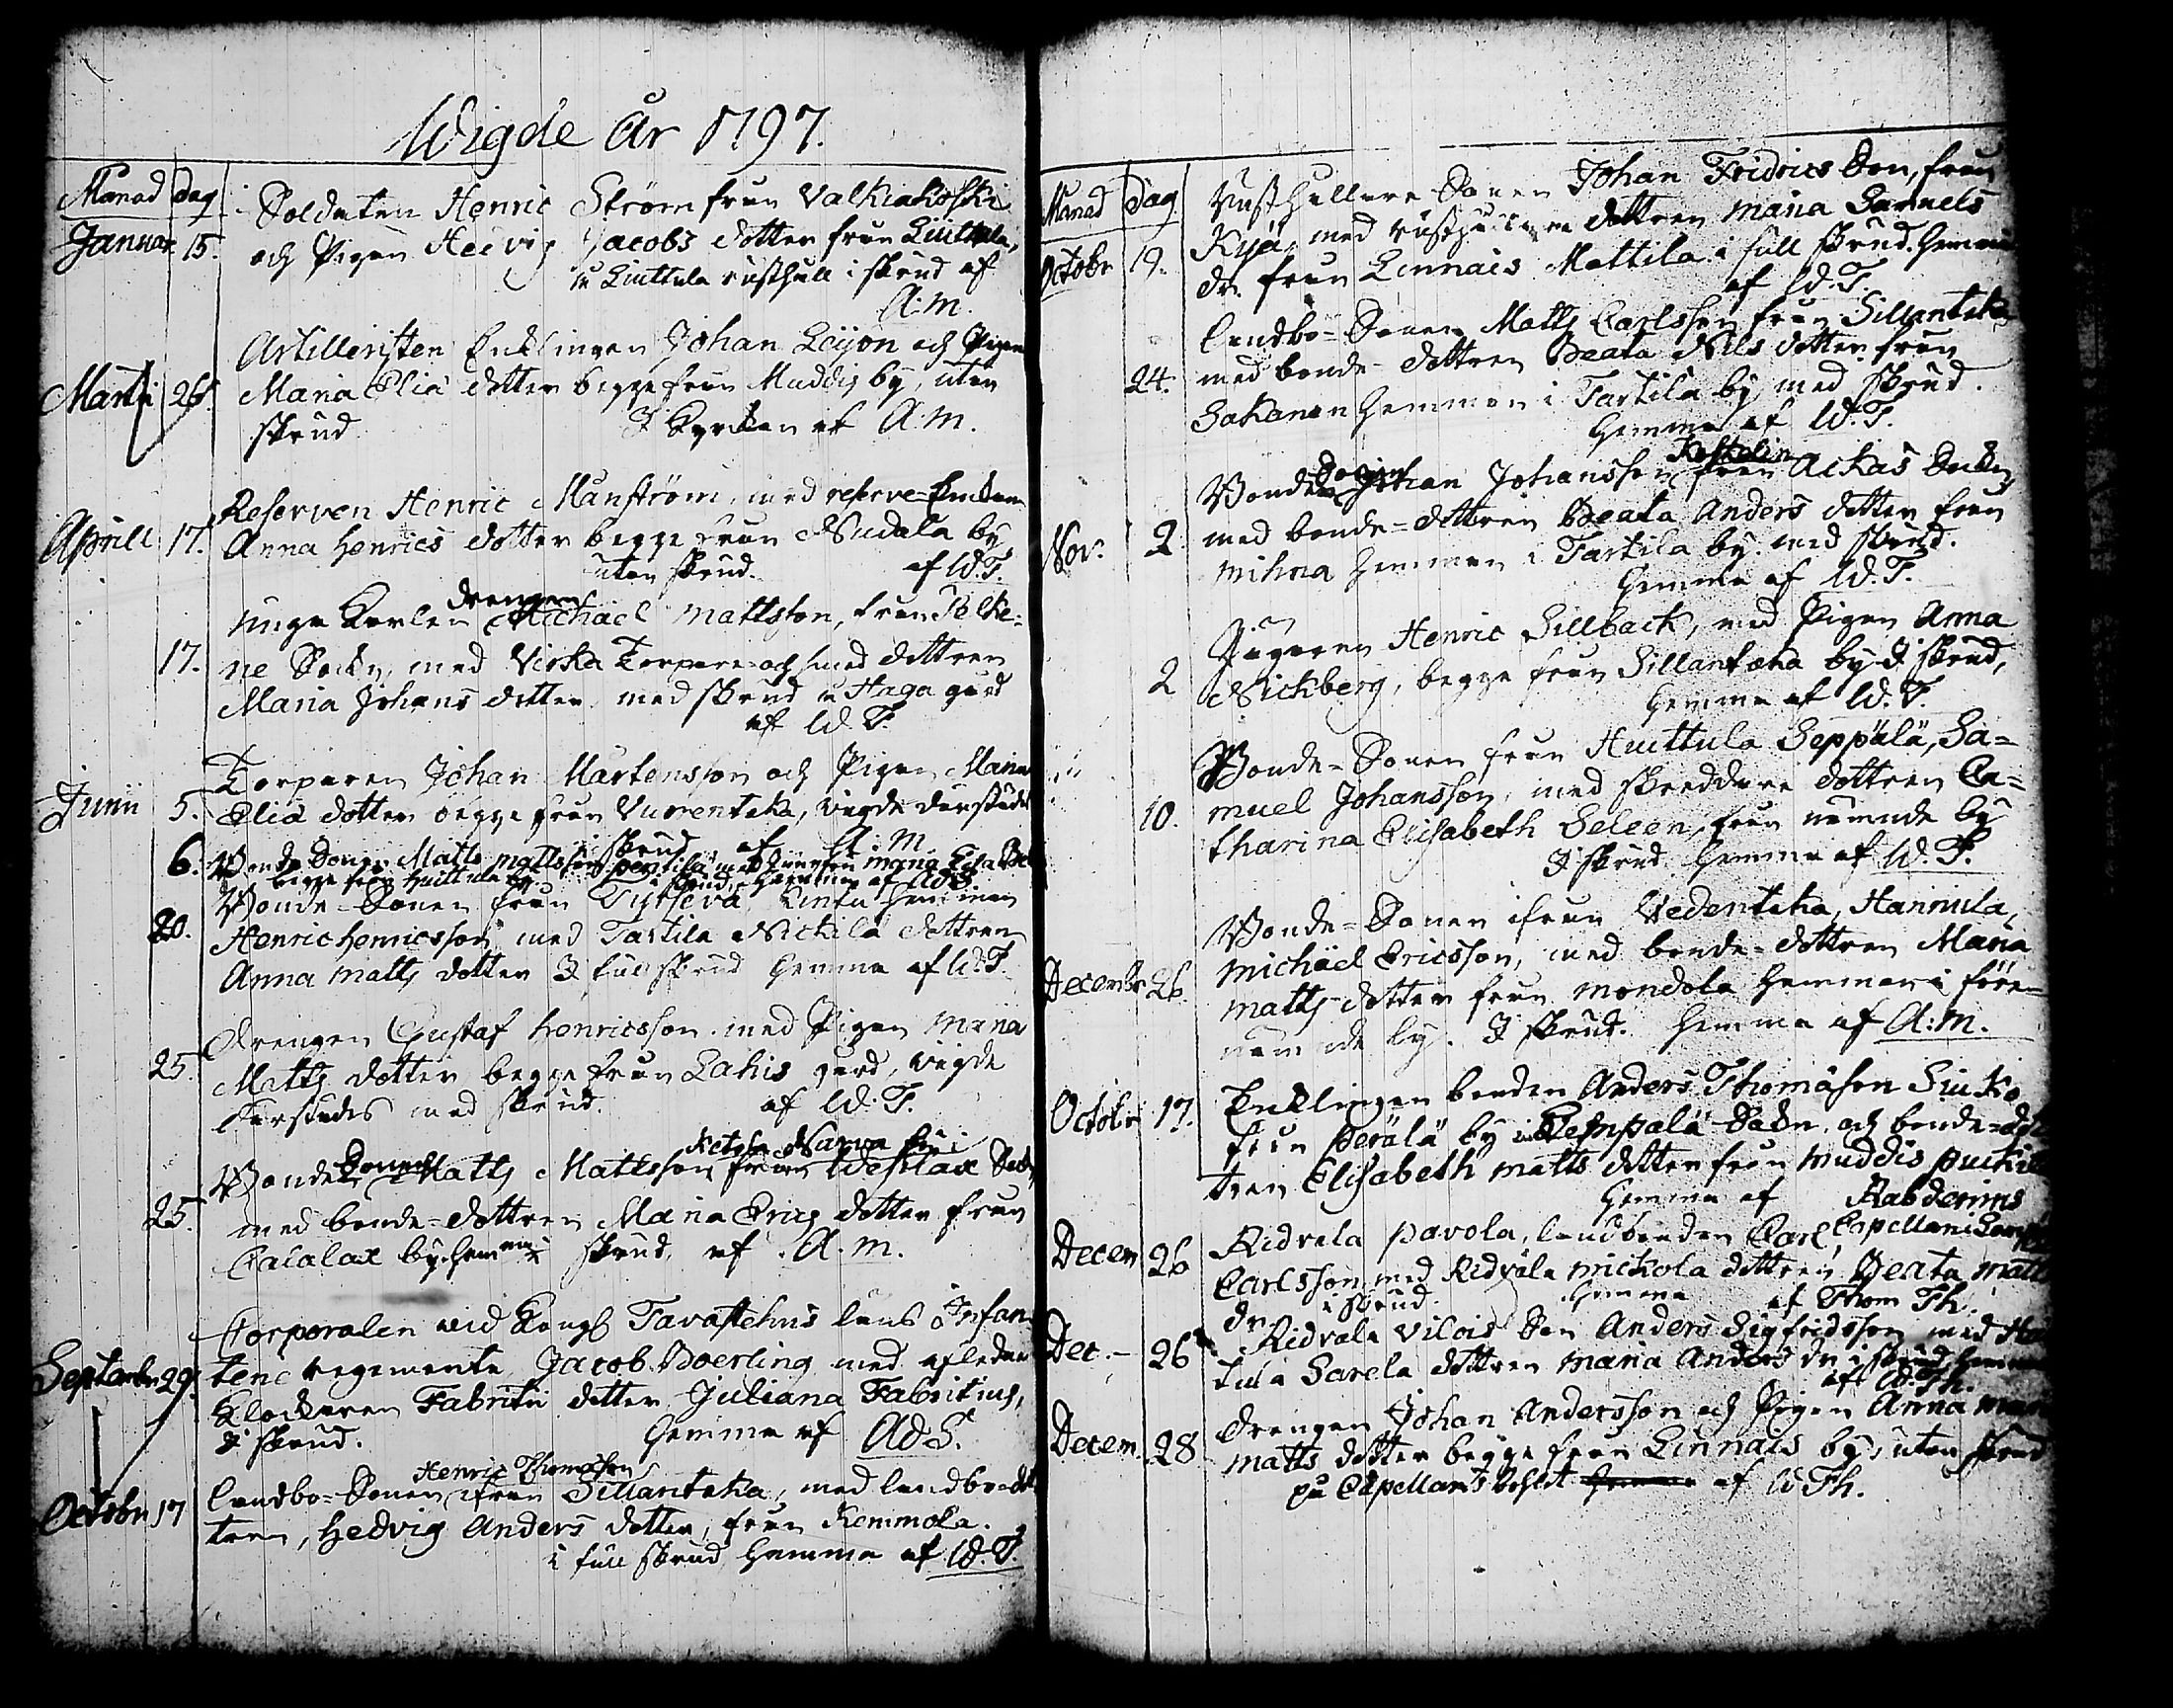 Wigde år 1797.
Månad dag
Januar 15. Soldaten Henric Ström från Valkiakoski
och Pigan Hedvig Jacobs dotter från Liuttula,
på Liuttula rusthåll i skrud af
A: M.
Martii 26. Artilleristen Enklingen Johan Leijon och Pigan
Maria Eliæ dotter begge från Muddis by, utan
skrud I Kyrkan af A. M.
Aprill 17. Reserven Henric Manström, med reserve-Enkan
Anna Henrics dotter begge från Nudala by
utan skrud. af W. T.
drengen
17. unga Karlen Michael Mattsson, från Pelke-
ne Sockn, med Virsta Torpare och smed dottren
Maria Johans dotter med skrud å Haga gård
af W. T.
Junii 5. Torparen Johan Mårtensson och Pigan Maria
Eliæ dotter begge från Vuorentaka, vigde derstädes
i skrud af A: M.
6. Bonde Sonen Matts Mattsson pentilä med Jungfrun Maria Lisa
begge från Huittula by i skrud, hemma af W. T.
20. Bonde-Sonen från Tyrsevä, Lintu hemman
Henric Henricsson med Tarttila Nickilä dottren
Anna Matts dotter I full skrud hemma af W. T.
25. Drengen Gustaf Henricsson med Pigan Maria
Matts dotter begge från Lahis gård, vigde
derstädes med skrud. af W. T.
Ketola Narva by i
25. Bonde Sonen Matts Mattsson från Wesilax Sockn
med bonde-dottren Maria Erics dotter från
Cacalax by hemma i skrud, af A. M.
Septembr 29. Corporalen vid Kongl Tavastehus läns Infan-
terie regemente Jacob Boerling med afledne
Klockaren Fabritii dotter Juliana Fabritius,
I skrud. hemma af Ad S.
Henric Thomasson
Octobr 17 landbo-Sonen från Sillantaka, med landbo dot-
tren, Hedvig Anders dotter, från Kemmola.
i full skrud hemma af W. T.
Månad Dag
Octobr 19. Rusthållare Sonen Johan Fridrics Son, från
Rijä, med rusthållare dottren Maria Samuels
dr. från Linnais Mattila i full skrud. hemma
af W. T.
24. landbo-Sonen Matts Carlsson från Sillantaka
med bonde-dottren Beata Nils dotter från
Sakanen hemman i Tarttila by med skrud.
hemma af W. T.
Sonen Kostelin
Nov. 2 Bonde Johan Johansson från Ackas Sockn
med bonde-dottren Beata Anders dotter från
Mihna hemman i Tarttila by med skrud.
hemma af W. T.
2 Jägaren Henric Sillback, med Pigan Anna
Nickberg, begge från Sillantaka by I skrud,
hemma af W. T.
10. Bonde-Sonen från Huittula Seppälä, Sa-
muel Johansson, med skreddare dottren Ca-
tharina Elisabeth Seleen, från nämnde by
I skrud hemma af W. T.
Decembr 26. Bonde-Sonen ifrån Vedentaka, Hannula,
Michäel Ericsson, med bonde-dottren Maria
Matts-dotter från Mondola hemman i före-
nämnde by. I skrud. hemma af A: M.
Octobr 17. Enklingen bonden Anders Thomason Siuko
från Perälä by i Lempälä Sockn och bonde-dot-
tren Elisabeth Matts dotter från Muddis Puckila
hemma af Rabdenius
Capellan i Lempälä
Decem 26 Ridvala Pavola, landbonden Carl
Carlsson, med Ridvala Mickola dottren, Beata Matts
dr i skrud. hemma af Thom Th.
Dec. 26 Ridvala Vilois Son Anders Sigfridsson med
tula Sarela dottren Maria Anders dr i skrud, hemma
af W. Th.
Decem. 28 Drengen Johan Andersson och Pigan Anna
Matts dotter begge från Linnais by, utan skrud
på Capellans bohlet af W Th.